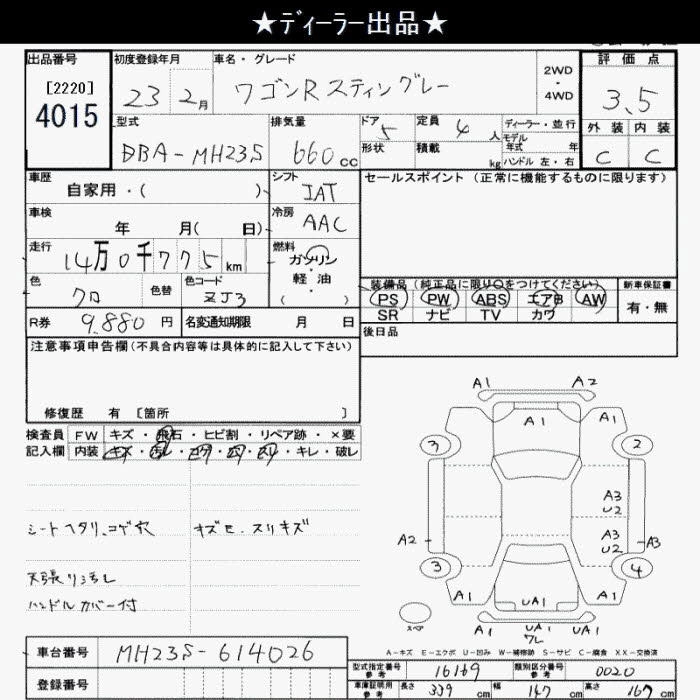 ★ディーラー出品★
出品番号 初度登録年月 車名・グレード 評価点
[2220]
4015
23 2月 ワゴンR スティングレー 2WD・4WD 3.5
型式 排気量 ドア 定員 ディーラー・並行 外装 内装
DBA-MH23S 660cc 5 4人 モデル年式 年 C C
形状 積載 kg ハンドル 左・右
車歴 シフト セールスポイント (正常に機能するものに限ります)
自家用・( ) IAT
車検 冷房
年 月( 日) AAC
走行 燃料
14万0千775km ガソリン・軽油
( )
色 色替 色コード 装備品 (純正品に限り○をつけてください) 新車保証書
クロ ZJ3 PS PW ABS エアB AW 有・無
SR ナビ TV カワ
R券 9.880円 名変通知期限 月 日 後日品
注意事項申告欄(不具合内容等は具体的に記入して下さい)
修復歴 有 [箇所 ]
検査員記入欄 FW キズ・飛石・ヒビ割・リペア跡・×要
内装 キズ・汚レ・コゲ・穴・スリ・キレ・破レ
シートヘタリ、コゲ穴 キズモ、スリキズ
天張リ汚レ
ハンドルカバー付
A1 A2
A1 A1 A1
3 2
A3
U2
A2 A3 A3
U2
3 4
A1 UA1 A1
スペア A1 UA1 UA1
ワレ
A-キズ E-エクボ U-凹み W-補修跡 S-サビ C-腐食 XX-交換済
車台番号 MH23S-614026
型式指定番号 参考 16169 類別区分番号 参考 0020
登録番号
車庫証明用 参考 長さ 339cm 幅 147cm 高さ 167cm